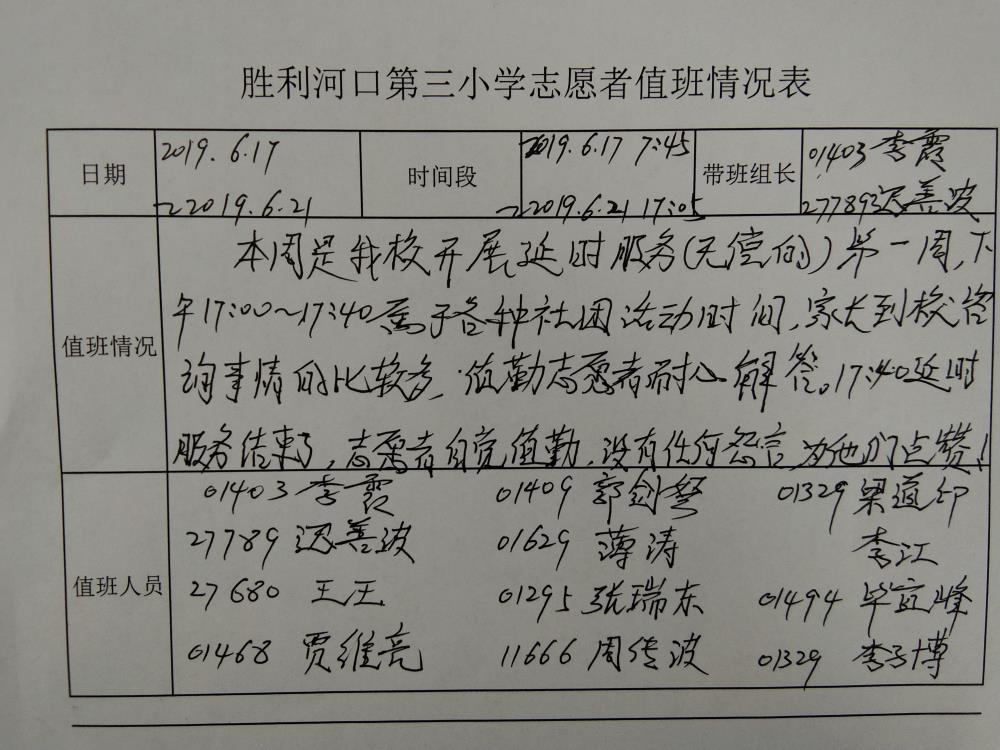 胜利河口第三小学志愿者值班情况表
日期 2019.6.17 ~2019.6.21 时间段 2019.6.17 7:45 ~2019.6.21 17:05 带班组长 01403 李霞 277893迟善波
值班情况
本周是我校开展延时服务(无偿的)第一周,下
午17:00~17:40属于各种社团活动时间,家长到校咨
询事情的比较多,值勤志愿者耐心解答。17:40延时
服务结束了,志愿者自觉值勤,没有任何怨言,为他们点赞!
值班人员
01403 李霞 01409 郭剑 01329 梁道印
27789 迟善波 01629 薄涛 李江
27680 王王 01295 张瑞东 01494 毕宜峰
01468 贾维亮 11666 周传波 01329 李子博